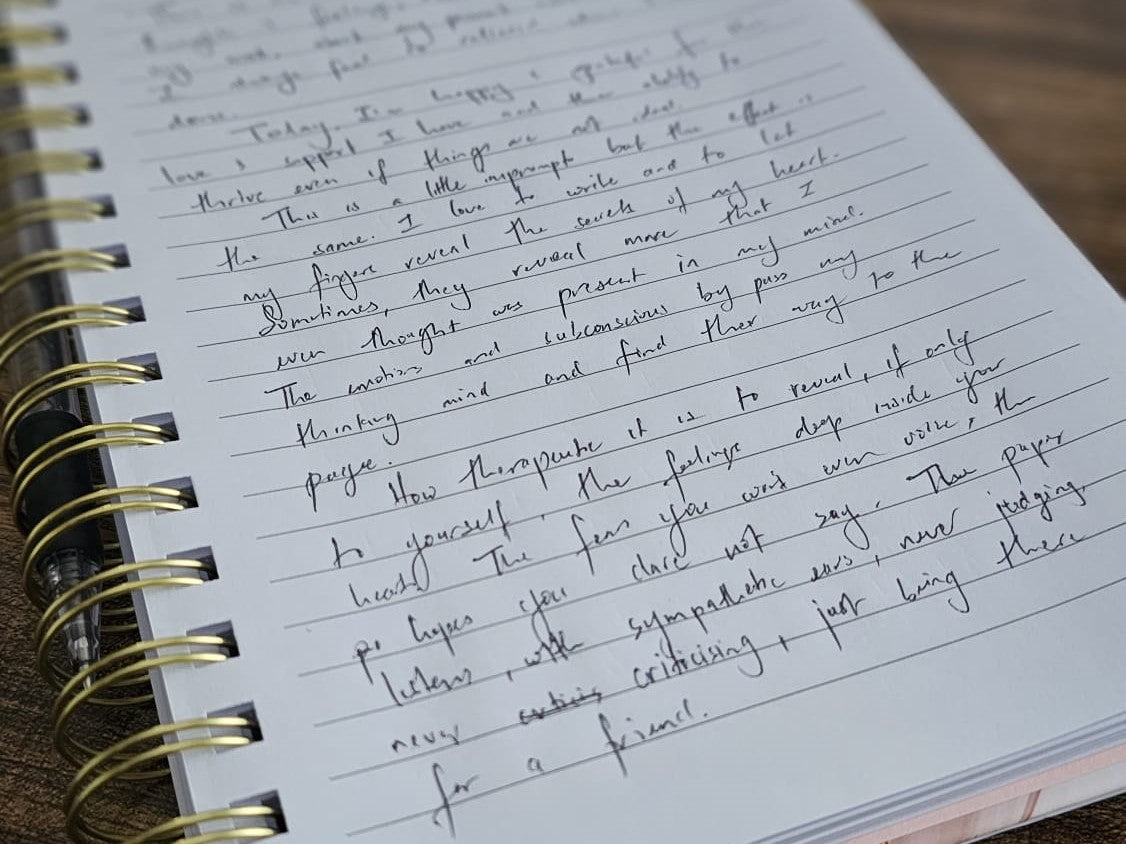 my
I
done.
Today, I'm happy & grateful for the
love & support I have and the ability to
thrive even if things are not ideal.
This is a little impromptu but the effect is
the same. I love to write and to let
my fingers reveal the secrets of my heart.
Sometimes, they reveal more that I
even thought was present in my mind.
The emotions and subconscious by pass my
thinking mind and find ther way to the
page.
How therapeutic it is to reveal, if only
to yourself, the feelings deep inside your
heart. The fears you won't even voice, the
hopes you dare not say. The paper
listens, with sympathetic ears, never judging,
never criticising, just being there
for a friend.